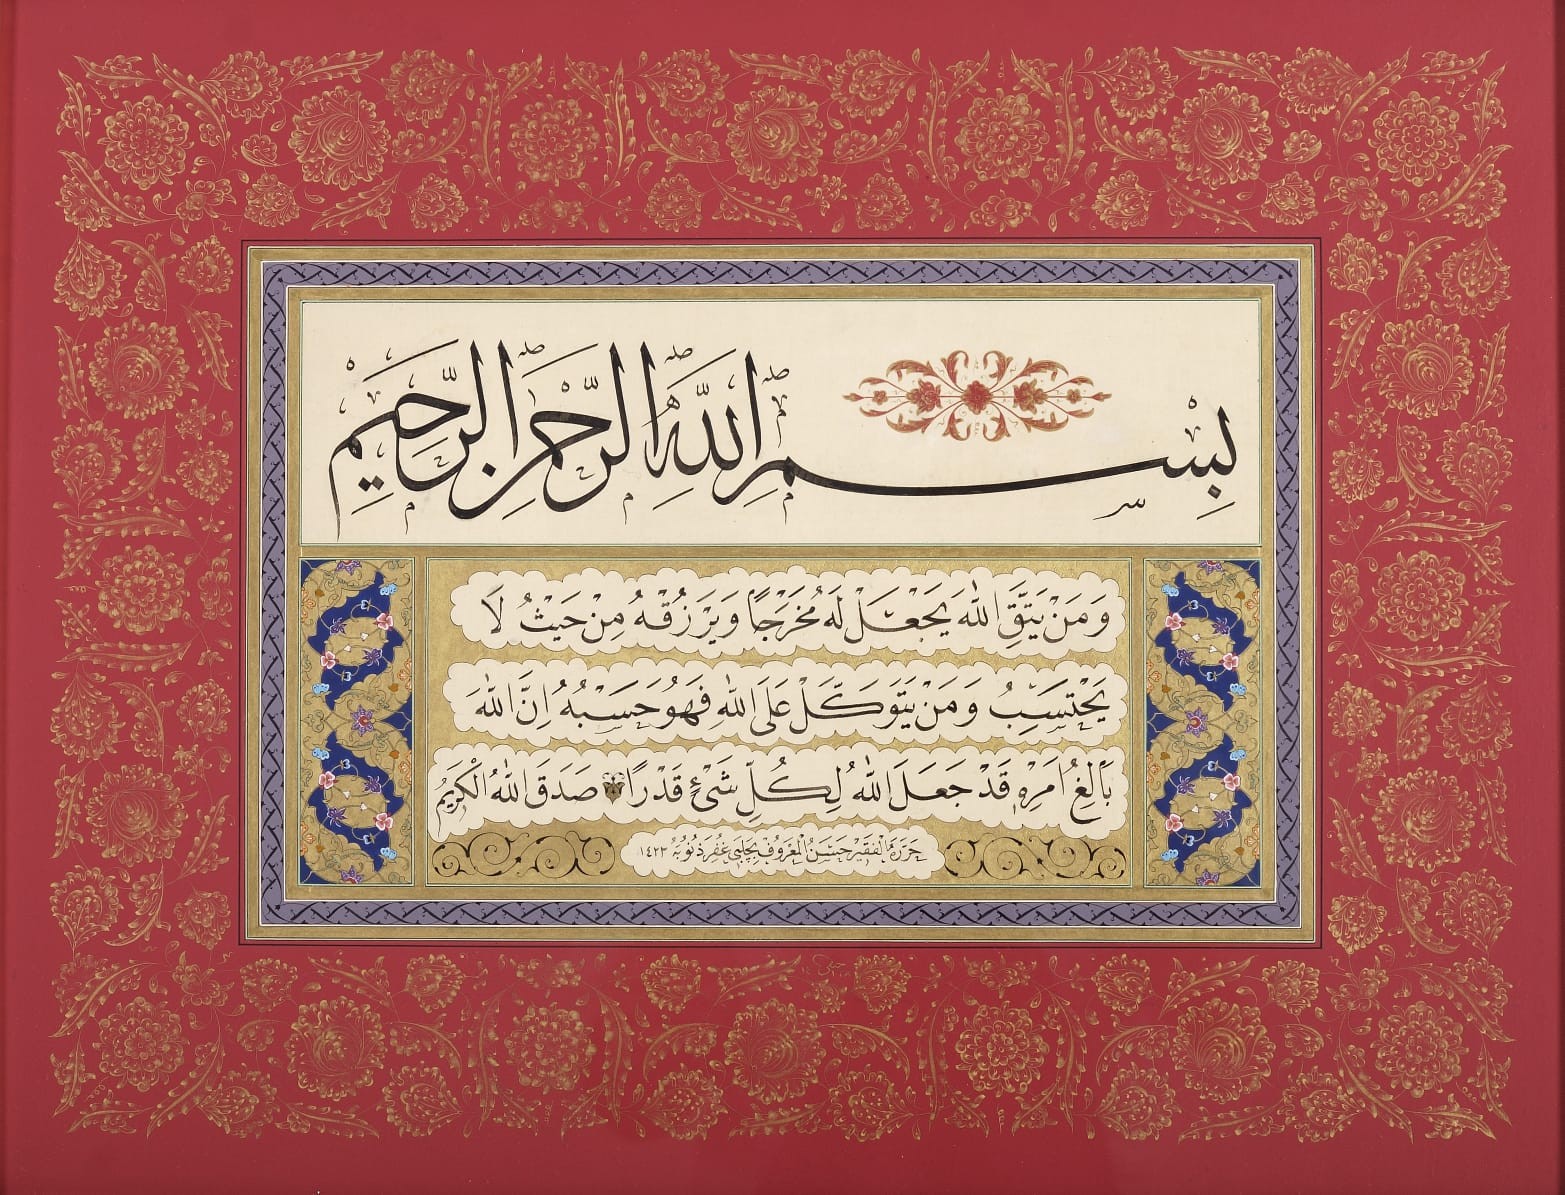 بِسْمِ اللهِ الرَّحْمٰنِ الرَّحِيمِ
وَمَنْ يَتَّقِ اللهَ يَجْعَلْ لَهُ مَخْرَجًا وَيَرْزُقْهُ مِنْ حَيْثُ لَا
يَحْتَسِبُ وَمَنْ يَتَوَكَّلْ عَلَى اللهِ فَهُوَ حَسْبُهُ اِنَّ اللهَ
بَالِغُ اَمْرِهِ قَدْ جَعَلَ اللهُ لِكُلِّ شَيْءٍ قَدْرًا صَدَقَ اللهُ الْكَرِيمُ
حَرَّرَهُ الْفَقِيرُ حَسَنُ الْمَعْرُوفُ بِچلبى غُفِرَ ذُنُوبُهُ ١٤٢٢